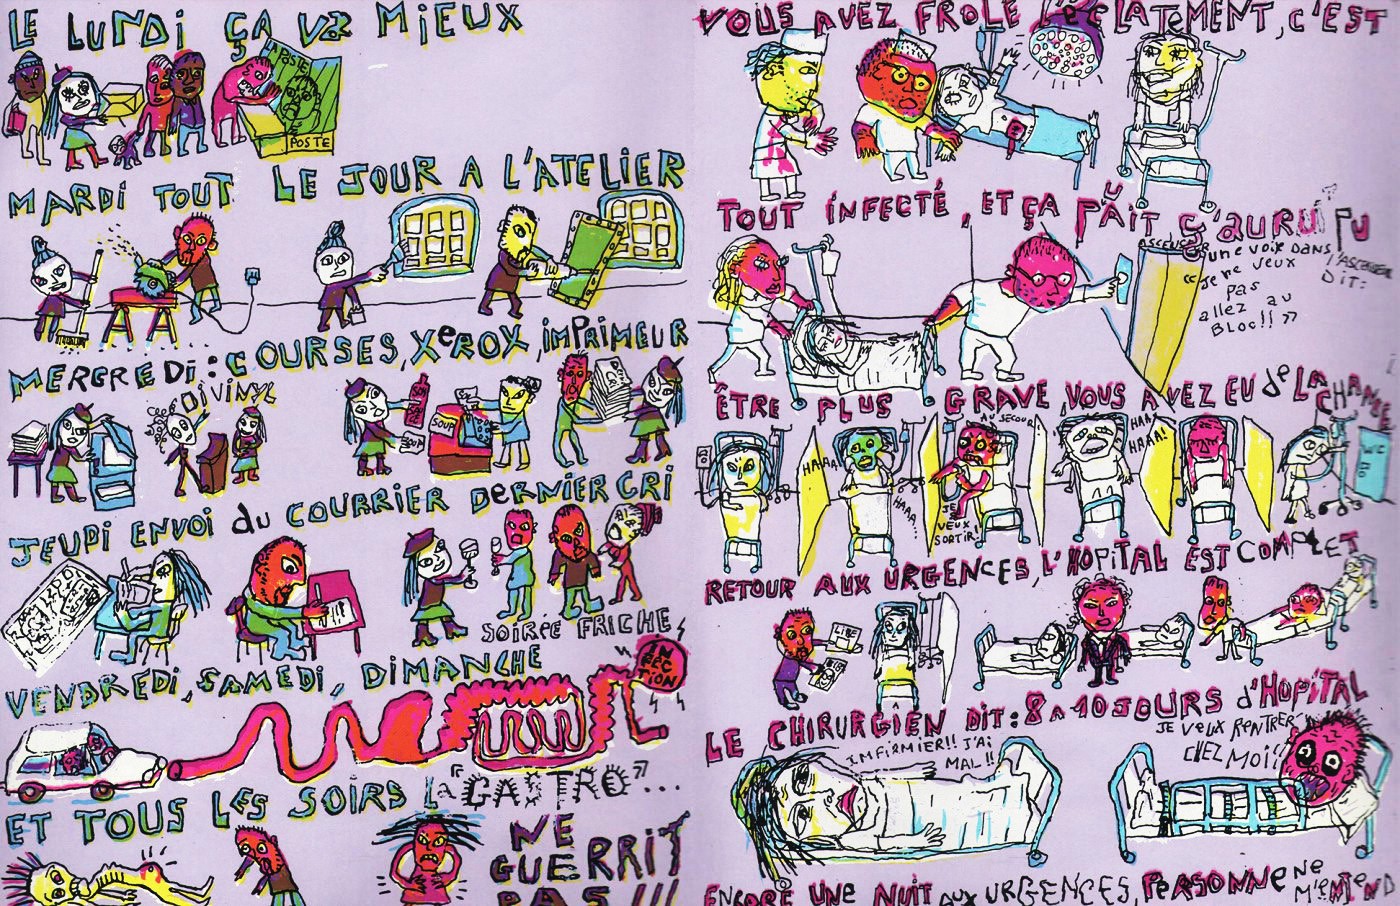 LE LUNDI ÇA VA MIEUX
LA POSTE
POSTE
MARDI TOUT LE JOUR A L'ATELIER
MERCREDI : COURSES, XeROX, iMPRIMEUR
DIVINYL
SOUP
JEUDI ENVOI du COURRIER DeRNIER CRI
SOIRÉE FRICHE
VENDREDI, SAMEDI, DIMANCHE
INFECTION
ET TOUS LES SOIRS La "GASTRO"...
NE
GUERRIT
PAS !!!
VOUS AVEZ FROLÉ L'éCLATeMENT, C'EST
TOUT iNFECTÉ, ET ÇA FAIT ÇA AURU PU
ASCENSEUR
une voix DANS
L'ASCENSEUR
DiT:
"Je ne veux
pas
allez au
BLOC!!"
ÊTRE PLUS GRAVE VOUS AVEZ EU de LA CHANCE
HAAAA!
HAAA..
AU SECOUR
JE
VEUX
SORTIR!
HAA
HAAA!
RETOUR AUX URGENCES, L'HOPITAL EST COMPLET
LIBÉ
LE CHIRURGIEN DIT : 8 A 10 JOURS d'HOPITAL
IMFIRMIER!! J'AI
MAL!!
JE VEUX RENTRER
CHEZ MOI!
ENCORE UNE NUIT AUX URGENCES, PERSONNE NE
M'EMEND